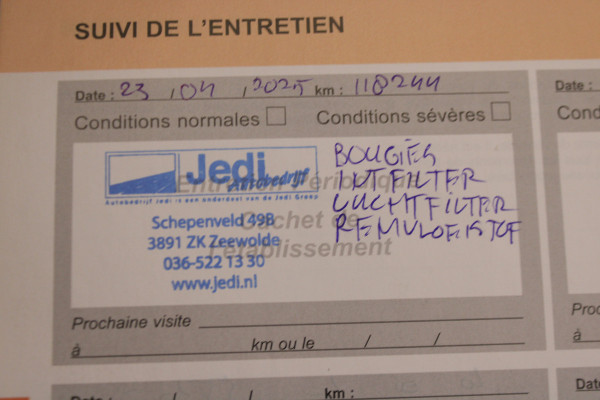 SUIVI DE L'ENTRETIEN
Date : 23 / 04 / 2025 km : 118244
Date :
Conditions normales Conditions sévères
Cond
Jedi
Autobedrijf
Autobedrijf Jedi is een onderdeel van de Jedi Groep
Entretien Périodique
Cachet de
l'établissement
Schepenveld 49B
3891 ZK Zeewolde
036-522 13 30
www.jedi.nl
BOUGIES
INT FILTER
LUCHTFILTER
REMVLOEISTOF
Prochaine visite
à km ou le / /
Proch
à
Date : / / km :
Date